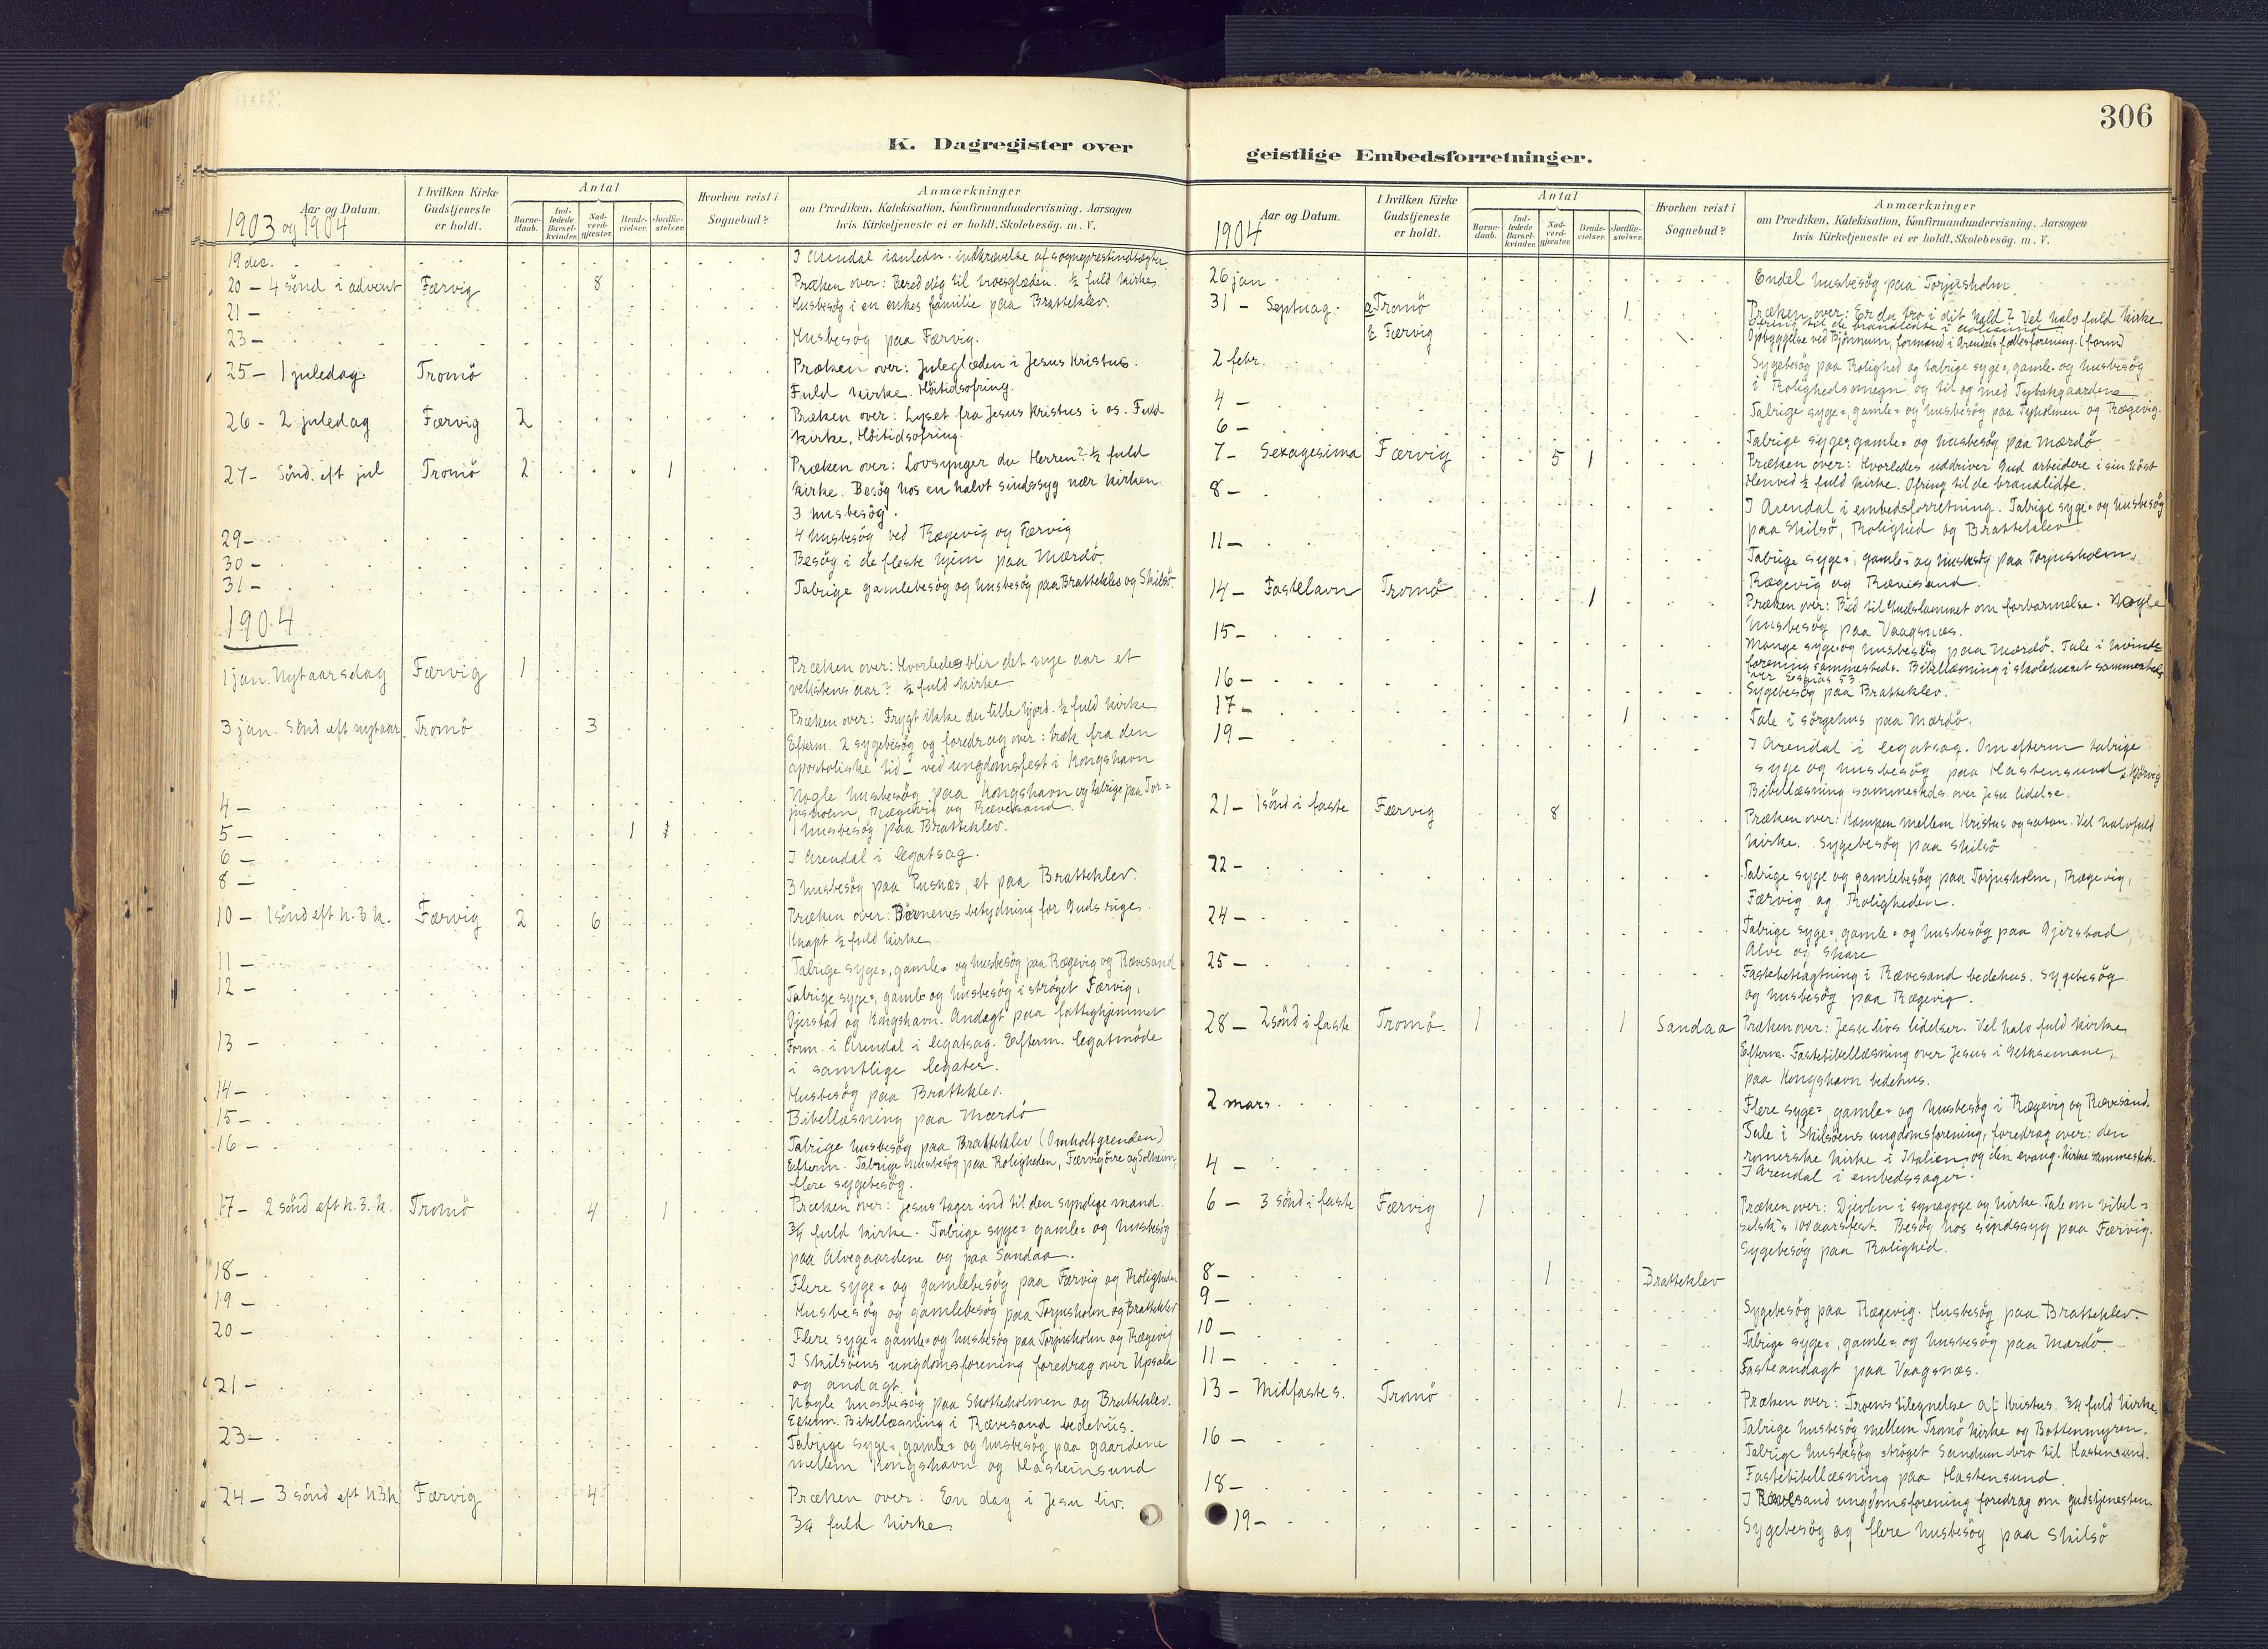 K. Dagregister over
Aar og Datum.
1903 og 1904
I hvilken Kirke Gudstjeneste er holdt.
Antal
Barne-daab.
Ind-ledede Barsel-kvinder.
Nad-verd-gjæster.
Brude-vielser.
Jordfæ-stelser.
Hvorhen reist i Sognebud?
Anmærkninger
om Prædiken, Katekisation, Konfirmandundervisning, Aarsagen
hvis Kirketjeneste ei er holdt, Skolebesög, m. V.
19 dec. I Arendal i anledn. indkrævelse af sogneprestindtægter
20 - 4 sönd i advent Færvig 8 Præken over: Bered dig til troesglæden. ½ fuld kirke.
21 - Husbesög i en enkes familie paa Bratteklev.
23 - Husbesög paa Færvig.
25 - 1 juledag Tromö Præken over: Juleglæden i Jesus Kristus.
Fuld kirke. Höitidsofring.
26 - 2 juledag Færvig 2 Præken over: Lyset fra Jesus Kristus i os. Fuld
kirke. Höitidsofring.
27 - Sönd. eft jul Tromö 2 1 Præken over: Lovsynger du Herren? ½ fuld
kirke. Besög hos en halvt sindssyg nær kirken.
3 husbesög.
29 - 4 husbesög ved Rægevig og Færvig
30 - Besög i de fleste hjem paa Mærdö.
31 - Talrige gamlebesög og husbesög paa Bratteklev og Skilsö.
1904
1 jan. Nytaarsdag Færvig 1 Præken over: Hvorledes blir det nye aar et
vekstens aar? ½ fuld kirke
3 jan. Sönd eft nytaar Tromö 3 Præken over: Frygt ikke du lille hjord. ½ fuld kirke
Efterm. 2 sygebesög og foredrag over: træk fra den
apostoliske tid - ved ungdomsfest i Kongshavn
4 - Nogle husbesög paa Kongshavn og talrige paa Tor=
jusholm, Rægevig og Rævesand.
5 - 1 1 1 husbesög paa Bratteklev.
6 - I Arendal i legatsag.
8 - 3 husbesög paa Pusnæs, et paa Bratteklev.
10 - 1 sönd eft h. 3 k. Færvig 2 6 Præken over: Börnenes betydning for Guds rige.
Knapt ½ fuld kirke.
11 - Talrige syge=, gamle= og husbesög paa Rægevig og Rævesand
12 - Talrige syge=, gamle og husbesög i ströget Færvig,
Gjerstad og Kongshavn. Andagt paa fattighjemmet
13 - Form. i Arendal i legatsag. Efterm. legatmöde
i samtlige legater.
14 - Husbesög paa Bratteklev.
15 - Bibellæsning paa Mærdö
16 - Talrige husbesög paa Bratteklev (Omholtgrenden)
Efterm. Talrige husbesög paa Roligheden, Færvigöire og Solheim,
flere sygebesög.
17 - 2 sönd eft h. 3. k. Tromö 4 1 Præken over: Jesus tager ind til den syndige mand.
¾ fuld kirke. Talrige syge= gamle= og husbesög
paa Alvegaardene og paa Sandaa.
18 - Flere syge= og gamlebesög paa Færvig og Roligheden
19 - Husbesög og gamlebesög paa Torjusholm og Bratteklev
20 - Flere syge= gamle= og husbesög paa Torjusholm og Rægevig
I Skilsöens ungdomsforening foredrag over Upsala
og andagt.
21 - Nogle husbesög paa Skotteholmen og Bratteklev.
Efterm. Bibellæsning i Rævesand bedehus.
23 - Talrige syge=, gamle= og husbesög paa gaardene
mellem Kongshavn og Hasteinsund
24 - 3 sönd eft h3k Færvig 4 Præken over: En dag i Jesu liv.
¾ fuld kirke.
306
geistlige Embedsforretninger.
Aar og Datum.
1904
I hvilken Kirke Gudstjeneste er holdt.
Antal
Barne-daab.
Ind-ledede Barsel-kvinder.
Nad-verd-gjæster.
Brude-vielser.
Jordfæ-stelser.
Hvorhen reist i Sognebud?
Anmærkninger
om Prædiken, Katekisation, Konfirmandundervisning, Aarsagen
hvis Kirketjeneste ei er holdt, Skolebesög, m. V.
26 jan Endel husbesög paa Torjusholm.
31 - Septuag. a Tromö 1 Præken over: Er du tro i dit kald? Vel halv fuld kirke
Ofring til de brandlidte i Aalesund
b Færvig Opbyggelse ved Bjönnum, formand i Arendals fællesforening. (form)
2 febr. Sygebesög paa Rolighed og talrige syge=, gamle= og husbesög
i Rolighedsomegn og til og med Tybakgaardene
4 - Talrige syge=, gamle= og husbesög paa Tyholmen og Rægevig.
6 - Talrige syge= gamle= og husbesög paa Mærdö
7 - Sexagesima Færvig 5 1 Præken over: Hvorledes uddriver Gud arbeidere i sin höst
Henved ½ fuld kirke. Ofring til de brandlidte.
8 - I Arendal i embedsforretning. Talrige syge= og husbesög
paa Skilsö, Rolighed og Bratteklev
11 - Talrige syge=, gamle= og husbesög paa Torjusholm,
Rægevig og Rævesand.
14 - Fastelavn Tromö 1 Præken over: Bed til Gudslammet om forbarmelse. Nogle
husbesög paa Vaagsnæs.
15 - Mange syge og husbesög paa Mærdö. Tale i kvinde=
forening sammesteds. Bibellæsning i skolehuset sammesteds
over Esaias 53
16 - Sygebesög paa Bratteklev.
17 - 1 Tale i sörgehus paa Mærdö.
19 - I Arendal i legatsag. Om efterm talrige
syge og husbesög paa Hastensund & Kjörvig
Bibellæsning sammesteds. over Jesu lidelse.
21 - 1 sönd i faste Færvig 8 Præken over: Kampen mellem Kristus og satan. Vel halvfuld
kirke. Sygebesög paa Skilsö
22 - Talrige syge og gamlebesög paa Torjusholm, Rægevig,
Færvig og Roligheden.
24 - Talrige syge=, gamle= og husbesög paa Gjerstad,
Alve og Skare
25 - Fastebetragtning i Rævesand bedehus. Sygebesög
og husbesög paa Rægevig.
28 - 2 sönd i faste Tromö. 1 1 Sandaa Præken over: Jesu livs lidelser. Vel halv fuld kirke
Efterm. Fastebibellæsning over Jesus i Gethsemane,
paa Kongshavn bedehus.
2 mars Flere syge=, gamle= og husbesög i Rægevig og Rævesand.
Tale i Skilsöens ungdomsforening, foredrag over: den
romerske kirke i Italien, og den evang. kirke sammesteds.
4 - I Arendal i embedssager.
6 - 3 sönd i faste Færvig 1 Præken over: Djævlen i synagoge og kirke. Tale om bibel=
selsk's 100aarsfest. Besög hos sindssyg paa Færvig.
Sygebesög paa Rolighed.
8 - 1 Bratteklev
9 - Sygebesög paa Rægevig. Husbesög paa Bratteklev.
10 - Talrige syge=, gamle= og husbesög paa Mærdö.
11 - Fasteandagt paa Vaagsnæs.
13 - Midfastes. Tromö 1 Præken over: Troens tilegnelse af Kristus. ¾ fuld kirke.
Talrige husbesög mellem Tromö kirke og Bottenmyren.
16 - Talrige husbesög ströget Sandum bro til Hastensund.
Fastebibellæsning paa Hastensund.
18 - I Rævesand ungdomsforening foredrag om gudstjenesten.
19 - Sygebesög og flere husbesög paa Skilsö